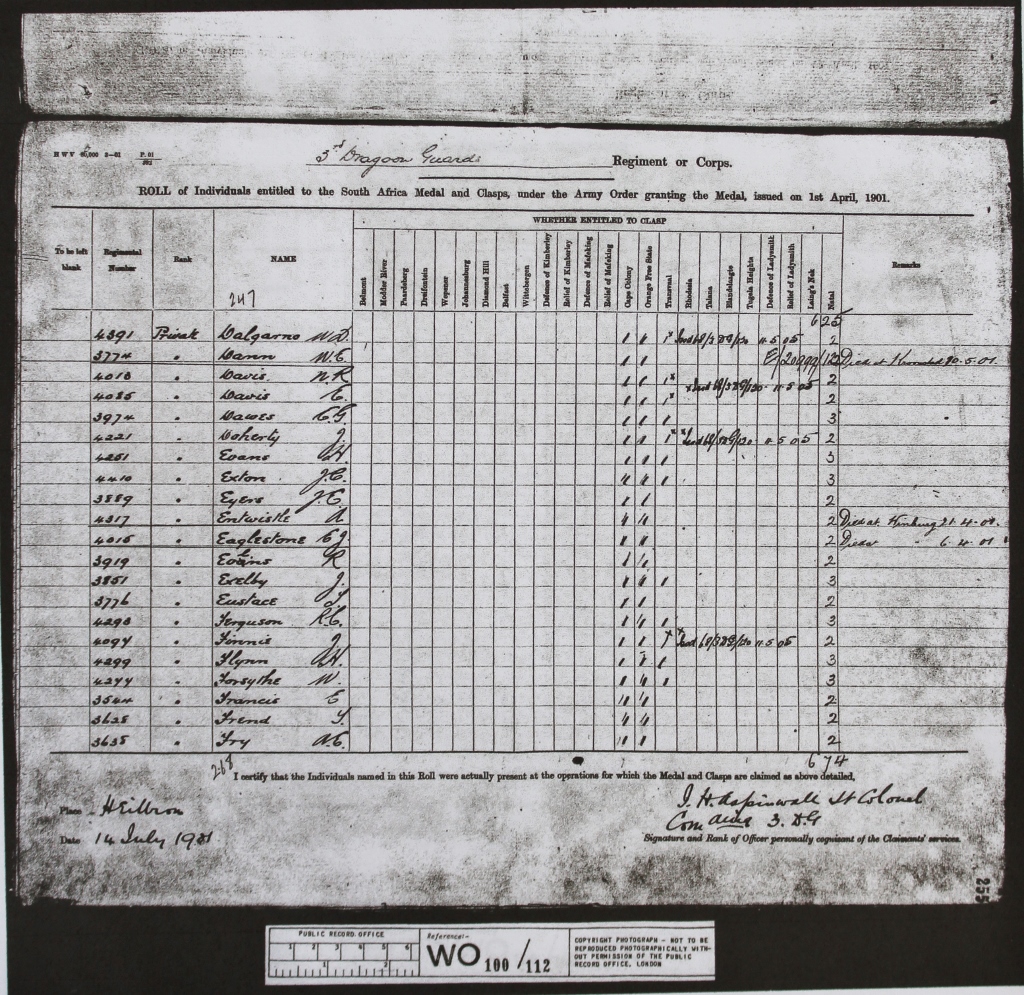 3rd Dragoon Guards Regiment or Corps.
ROLL of Individuals entitled to the South Africa Medal and Clasps, under the Army Order granting the Medal, issued on 1st April, 1901.
WHETHER ENTITLED TO CLASP
To be left blank Regimental Number Rank NAME Belmont Modder River Paardeberg Dreifontein Wepener Johannesburg Diamond Hill Belfast Wittebergen Defence of Kimberley Relief of Kimberley Defence of Mafeking Relief of Mafeking Cape Colony Orange Free State Transvaal Rhodesia Talana Elandslaagte Tugela Heights Defence of Ladysmith Relief of Ladysmith Laing's Nek Natal Remarks
247
625
4391 Private Dalgarno W.D. 2
3774 " Dann W.E. Died at 20.5.01
4018 " Davis N.R 2
4085 " Davis E. 2
3974 " Dawes C.G 3
4221 " Doherty J. 2
4251 " Evans 3
4410 " Exton J.C. 3
3889 " Eyers J.C. 2
4317 " Entwistle A 2 Died at 21.4.01
4016 " Eaglestone C.J. 2 Died at " 6.4.01
3919 " Evains R 2
3851 " Exelby J. 3
3776 " Eustace 2
4293 " Ferguson R.C. 3
4094 " Finnis J 2
4299 " Flynn 3
4244 " Forsythe W. 3
3544 " Francis C 2
3628 " Frend 2
3635 " Fry 2
268
674
I certify that the Individuals named in this Roll were actually present at the operations for which the Medal and Clasps are claimed as above detailed,
Place Heilbron
Date 14 July 1901
J. H. Aspinwall Lt Colonel
Comding 3. D.G
Signature and Rank of Officer personally cognisant of the Claimants' services.
255
PUBLIC RECORD OFFICE
1 2 3 4 5 6
1 2
Reference:-
WO 100/112
COPYRIGHT PHOTOGRAPH - NOT TO BE
REPRODUCED PHOTOGRAPHICALLY WITH-
OUT PERMISSION OF THE PUBLIC
RECORD OFFICE, LONDON